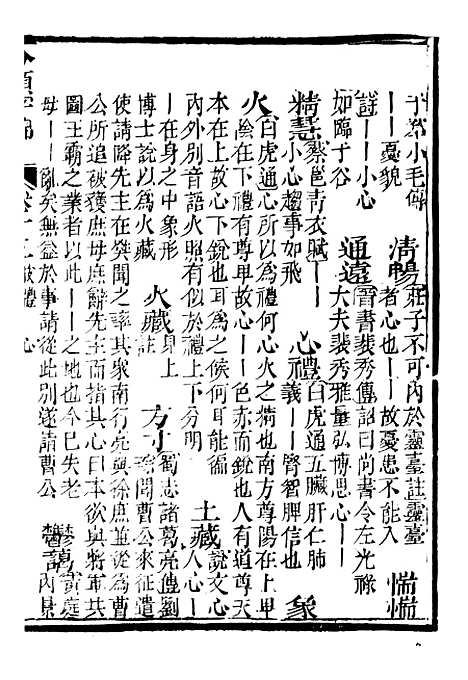 于京小毛傳
——憂貌 清暢 莊子不可內於靈臺註靈臺
者心也——故憂患不能入 惴惴
詩——小心
如臨于谷 通遠 晉書裴秀傳詔曰尚書令左光祿
大夫裴秀雅量弘博思心——
精慧 蔡邕靑衣賦——
小心趨事如飛 心禮 白虎通五臟肝仁肺
義——腎智脾信也 象
火 白虎通心所以為禮何心火之精也南方尊陽在上卑
陰在下禮有尊卑故心——色赤而銳也人有道尊天
本在上故心下銳也耳為之候何耳能徧
內外別音語火照有似於禮上下分明 土藏 說文心
人心——
——在身之中象形
博士說以為火藏 火藏 註見上 方寸 蜀志諸葛亮傳劉
琮聞曹公來征遣
使請降先主在樊聞之率其衆南行亮與徐庶並從為曹
公所追破獲庶母庶辭先主而指其心曰本欲與將軍共
圖王霸之業者以此——之地也今已失老
母——亂矣無益於事請從此別遂請曹公 鬱藹 黃庭
內景